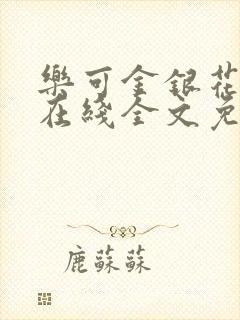 樂可金銀花
在綫全文免
鹿蘇蘇